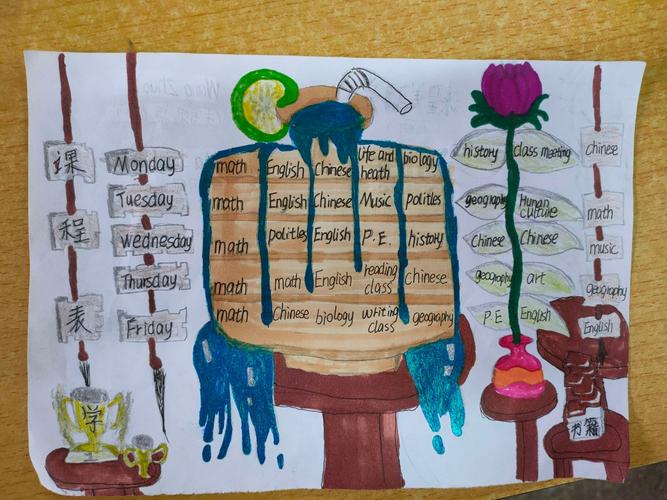 课程表
Monday math English Chinese life and heath biology history class meeting chinese
Tuesday math English Chinese Music polities geography Hunan culture math
Wednesday math polities English P.E. history Chinese Chinese music
Thursday math math English reading class Chinese geography art geography
Friday math Chinese biology writing class geography P.E English English
学
书籍